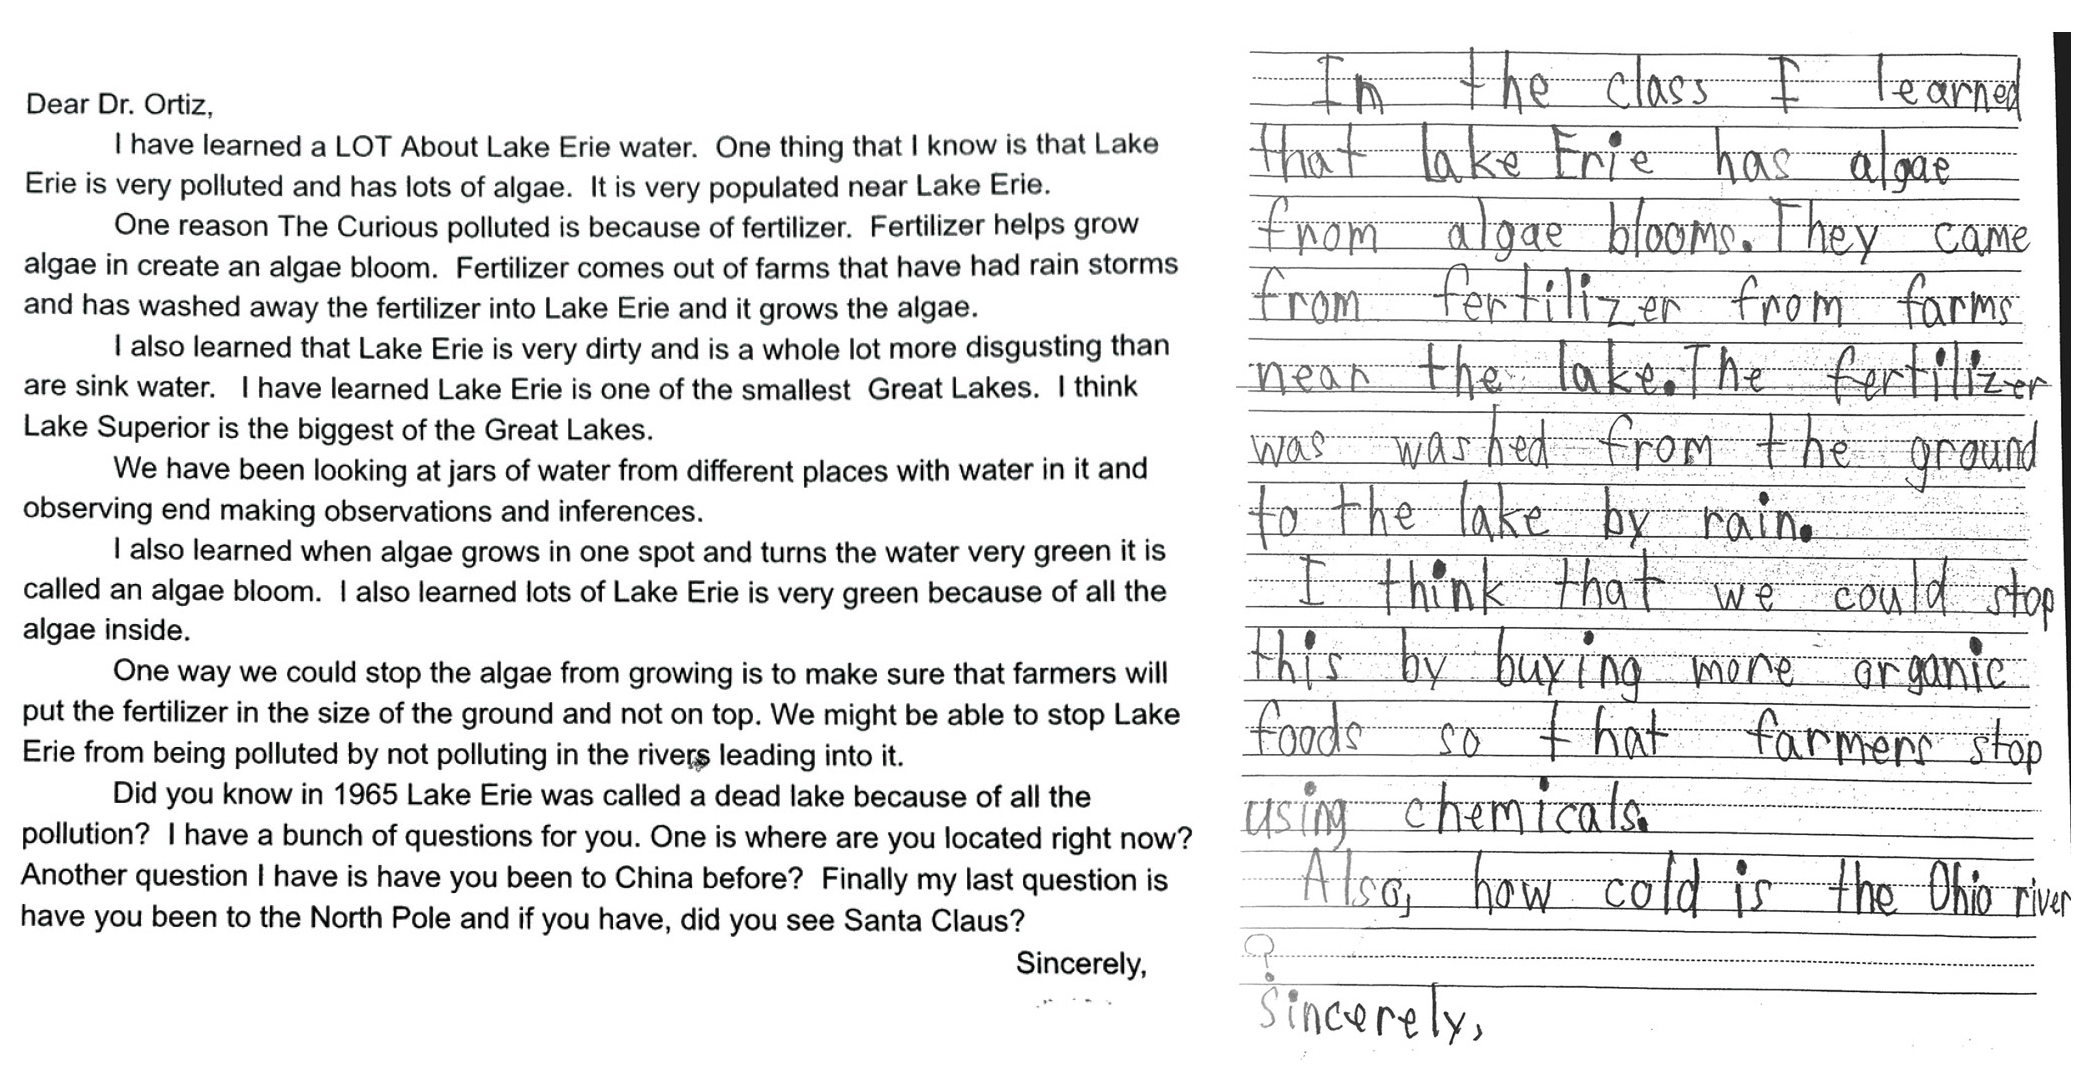 Dear Dr. Ortiz,
I have learned a LOT About Lake Erie water. One thing that I know is that Lake
Erie is very polluted and has lots of algae. It is very populated near Lake Erie.
One reason The Curious polluted is because of fertilizer. Fertilizer helps grow
algae in create an algae bloom. Fertilizer comes out of farms that have had rain storms
and has washed away the fertilizer into Lake Erie and it grows the algae.
I also learned that Lake Erie is very dirty and is a whole lot more disgusting than
are sink water. I have learned Lake Erie is one of the smallest Great Lakes. I think
Lake Superior is the biggest of the Great Lakes.
We have been looking at jars of water from different places with water in it and
observing end making observations and inferences.
I also learned when algae grows in one spot and turns the water very green it is
called an algae bloom. I also learned lots of Lake Erie is very green because of all the
algae inside.
One way we could stop the algae from growing is to make sure that farmers will
put the fertilizer in the size of the ground and not on top. We might be able to stop Lake
Erie from being polluted by not polluting in the rivers leading into it.
Did you know in 1965 Lake Erie was called a dead lake because of all the
pollution? I have a bunch of questions for you. One is where are you located right now?
Another question I have is have you been to China before? Finally my last question is
have you been to the North Pole and if you have, did you see Santa Claus?
Sincerely,
In the class I learned
that lake Erie has algae
from algae blooms. They came
from fertilizer from farms
near the lake. The fertilizer
was washed from the ground
to the lake by rain.
I think that we could stop
this by buying more organic
foods so that farmers stop
using chemicals.
Also, how cold is the Ohio river
?
Sincerely,